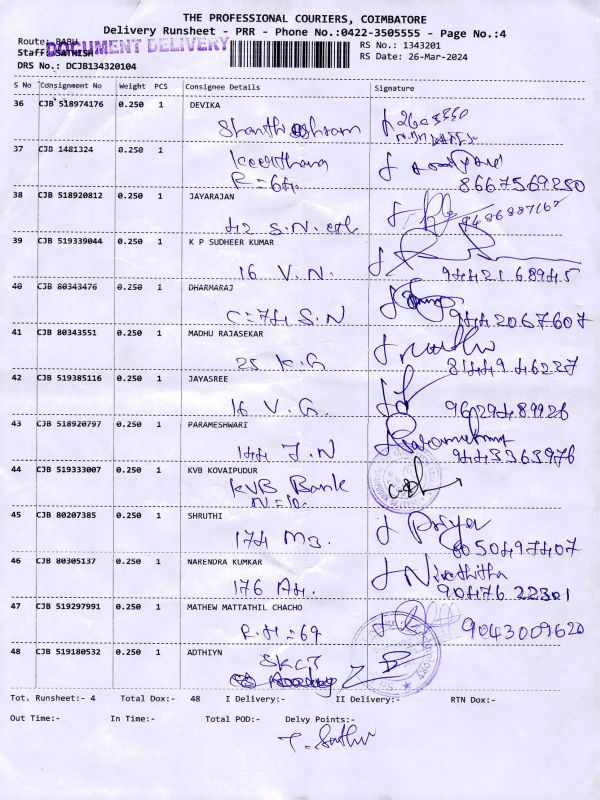 THE PROFESSIONAL COURIERS, COIMBATORE
Delivery Runsheet - PRR - Phone No.:0422-3505555 - Page No.:4
Route: BABU
DOCUMENT DELIVERY
RS No.: 1343201
Staff: SATHISH
RS Date: 26-Mar-2024
DRS No.: DCJB134320104
S No Consignment No Weight PCS Consignee Details Signature
36 CJB 518974176 0.250 1 DEVIKA
37 CJB 1481324 0.250 1 KEERTHANA
8667569250
38 CJB 518920812 0.250 1 JAYARAJAN
9486887167
39 CJB 519339044 0.250 1 K P SUDHEER KUMAR
16 V.N. 9442168945
40 CJB 80343476 0.250 1 DHARMARAJ
C=74 S.N 9442067607
41 CJB 80343551 0.250 1 MADHU RAJASEKAR
25 K.G 8144946227
42 CJB 519385116 0.250 1 JAYASREE
16 V.G. 9629489926
43 CJB 518920797 0.250 1 PARAMESHWARI
144 J.N 9443363976
44 CJB 519333007 0.250 1 KVB KOVAIPUDUR
KVB Bank
45 CJB 80207385 0.250 1 SHRUTHI
174 M3. Priya
8050497407
46 CJB 80305137 0.250 1 NARENDRA KUMKAR
176 A4. 9047622301
47 CJB 519297991 0.250 1 MATHEW MATTATHIL CHACHO
R.H=69 9043009620
48 CJB 519180532 0.250 1 ADTHIYN
SKCT
Tot. Runsheet:- 4 Total Dox:- 48 I Delivery:- II Delivery:- RTN Dox:-
Out Time:- In Time:- Total POD:- Delvy Points:-